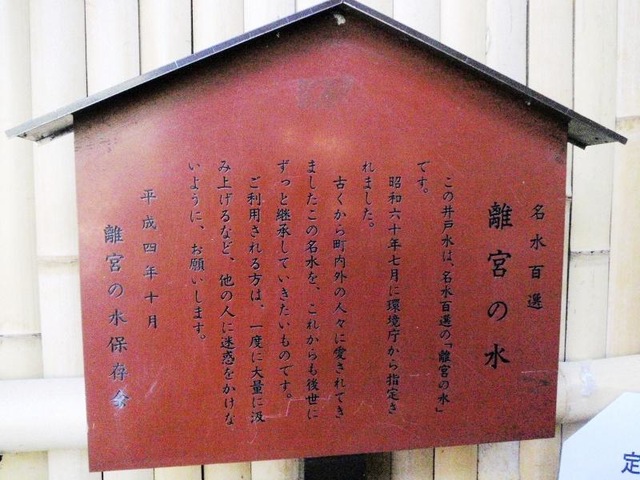 名水百選
離宮の水
この井戸水は、名水百選の「離宮の水」
です。
昭和六十年七月に環境庁から指定さ
れました。
古くから町内外の人々に愛されてき
ましたこの名水を、これからも後世に
ずっと継承していきたいものです。
ご利用される方は、一度に大量に汲
み上げるなど、他の人に迷惑をかけな
いように、お願いします。
平成四年十月
離宮の水保存会
定